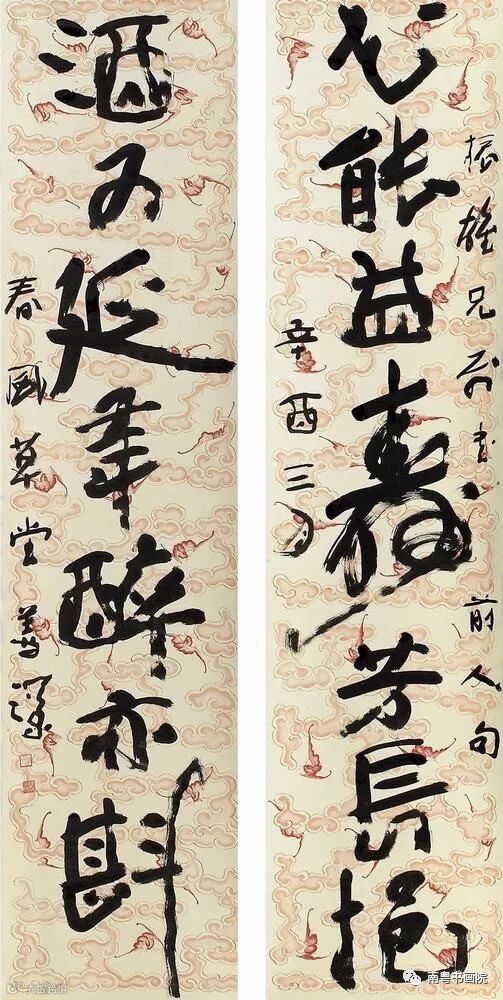 振雄兄命書 前人句
花能益壽芳長挹
辛酉三月
酒為延年醉亦斟
春風草堂
南粤书画院